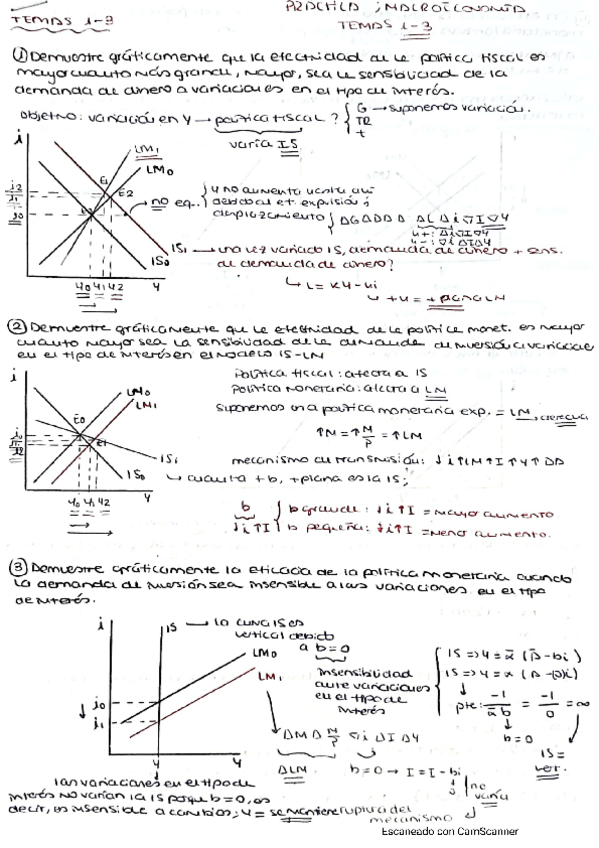 PRÁCTICA ; MACROECONOMÍA
TEMAS 1-3
TEMAS 1-3
① Demuestre gráficamente que la efectividad de la política fiscal es
mayor cuanto más grande, mayor, sea la sensibilidad de la
demanda de dinero a variaciones en el tipo de interés.
objetivo: variación en Y → política fiscal ? { G → suponemos variación.
TR
t
varía IS
i
LM1
LM0
E1
E2
i2
i1
i0
no eq..
y no aumenta hasta ahí
debido al ef. expulsión;
desplazamiento
IS1 → una vez variado IS, demanda de dinero + sens.
de demanda de dinero?
IS0
Y0 Y1 Y2 Y
↳ L = kY - ui
u + u = + plana LM
② Demuestre gráficamente que la efectividad de la política monet. es mayor
cuanto mayor sea la sensibilidad de la demanda de inversión a variaciones
en el tipo de interés en el modelo IS-LM
Política fiscal: afecta a IS
Política monetaria: afecta a LM
suponemos una política monetaria exp. = LM → derecha
↑M = ↑M/P = ↑LM
i
LM0
LM1
E0
E1
i0
i1
i2
IS1
IS0
Y0 Y1 Y2 Y
mecanismo de transmisión: ↓i ↑LM ↑I ↑Y ↑DA
↳ cuanto + b, + plana es la IS;
b { b grande: ↓i ↑I = mayor aumento
↓i ↑I b pequeña: ↓i ↑I = menor aumento.
③ Demuestre gráficamente la eficacia de la política monetaria cuando
la demanda de inversión sea insensible a las variaciones en el tipo
de interés.
i
IS → la curva IS es
vertical debido
a b=0
LM0
LM1
insensibilidad
ante variaciones
en el tipo de
interés
i0
i1
Y
Y
IS => Y = α (A - bi)
IS => Y = α (A - bi)
pte: -1/αb = -1/0 = ∞
b=0
IS =
ver.
ΔM Δ M/P ∇i ΔI ΔY
ΔLM
b=0 → I = I - bi
no
varía
las variaciones en el tipo de
interés no varían la IS porque b=0, es
decir, es insensible a cambios; Y = se mantiene ruptura del
mecanismo
Escaneado con CamScanner